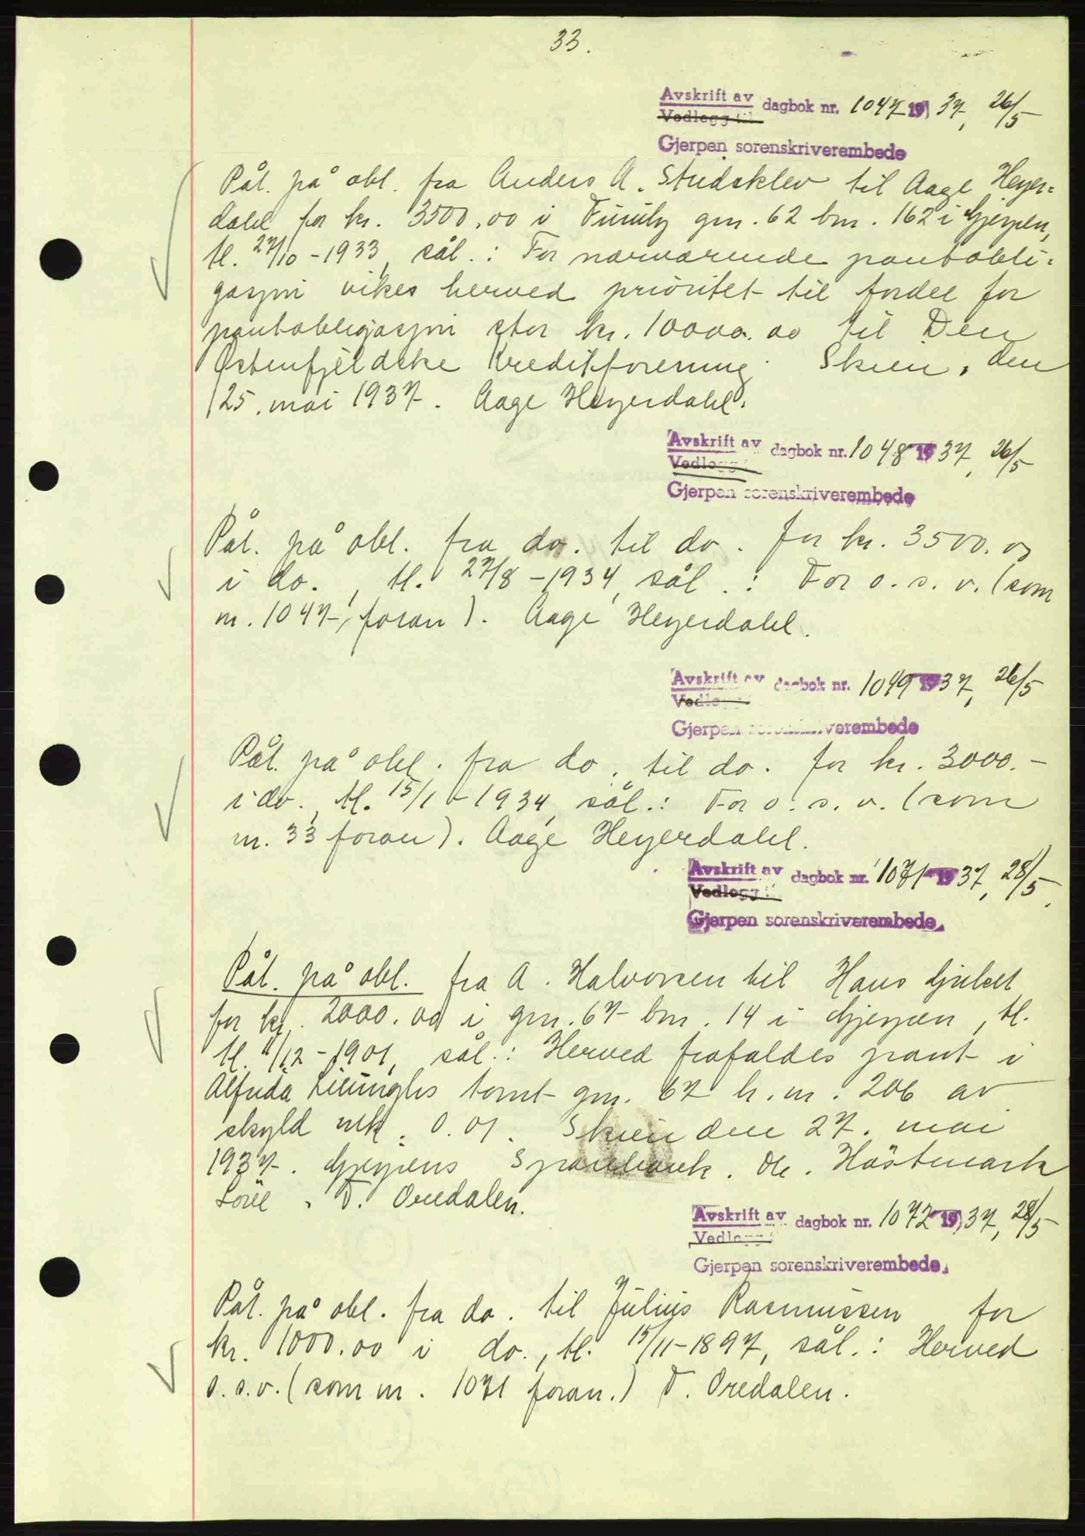 33.
Avskrift av dagbok nr. 1047 1937, 26/5
Vedlegg til
Gjerpen sorenskriverembede
Påt. på obl. fra Anders A. Studsklev til Aage Heyer=
dahl for kr. 3500.00 i gnr. 62 bnr. 162 i Gjerpen,
tl. 27/10-1933, sål.: For nærværende pantobli=
gasjon vikes herved prioritet til fordel for
pantobligasjon stor kr. 10000.00 til Den
Østenfjeldske Kreditforening. Skien, den
25. mai 1937. Aage Heyerdahl.
Avskrift av dagbok nr. 1048 1937, 26/5
Vedlegg
Gjerpen sorenskriverembede
Påt. på obl. fra do. til do. for kr. 3500.00
i do., tl. 27/8-1934, sål.: For o.s.v. (som
nr. 1047, foran). Aage Heyerdahl.
Avskrift av dagbok nr. 1049 1937, 26/5
Vedlegg
Gjerpen sorenskriverembede
Påt. på obl. fra do. til do. for kr. 3000.-
i do., tl. 15/1-1934, sål.: For o.s.v. (som
nr. 33 foran). Aage Heyerdahl.
Avskrift av dagbok nr. 1071 1937, 28/5.
Vedlegg til
Gjerpen sorenskriverembede.
Påt. på obl. fra A. Halvorsen til Hans
for kr. 2000.00 i gnr. 67 bnr. 14 i Gjerpen, tl.
tl. /12-1901, sål.: Herved frafaldes pant i
tomt gnr. 67 b.nr. 206 av
skyld mk. 0.01. Skien den 27. mai
1937. Gjerpens Sparebank. Ole. Høstmark
T. Oredalen.
Avskrift av dagbok nr. 1072 1937, 28/5
Vedlegg
Gjerpen sorenskriverembede.
Påt. på obl. fra do. til Julius Rasmussen for
kr. 1000.00 i do., tl. 15/11-1897, sål.: Herved
o.s.v. (som nr. 1071 foran.) T. Oredalen.